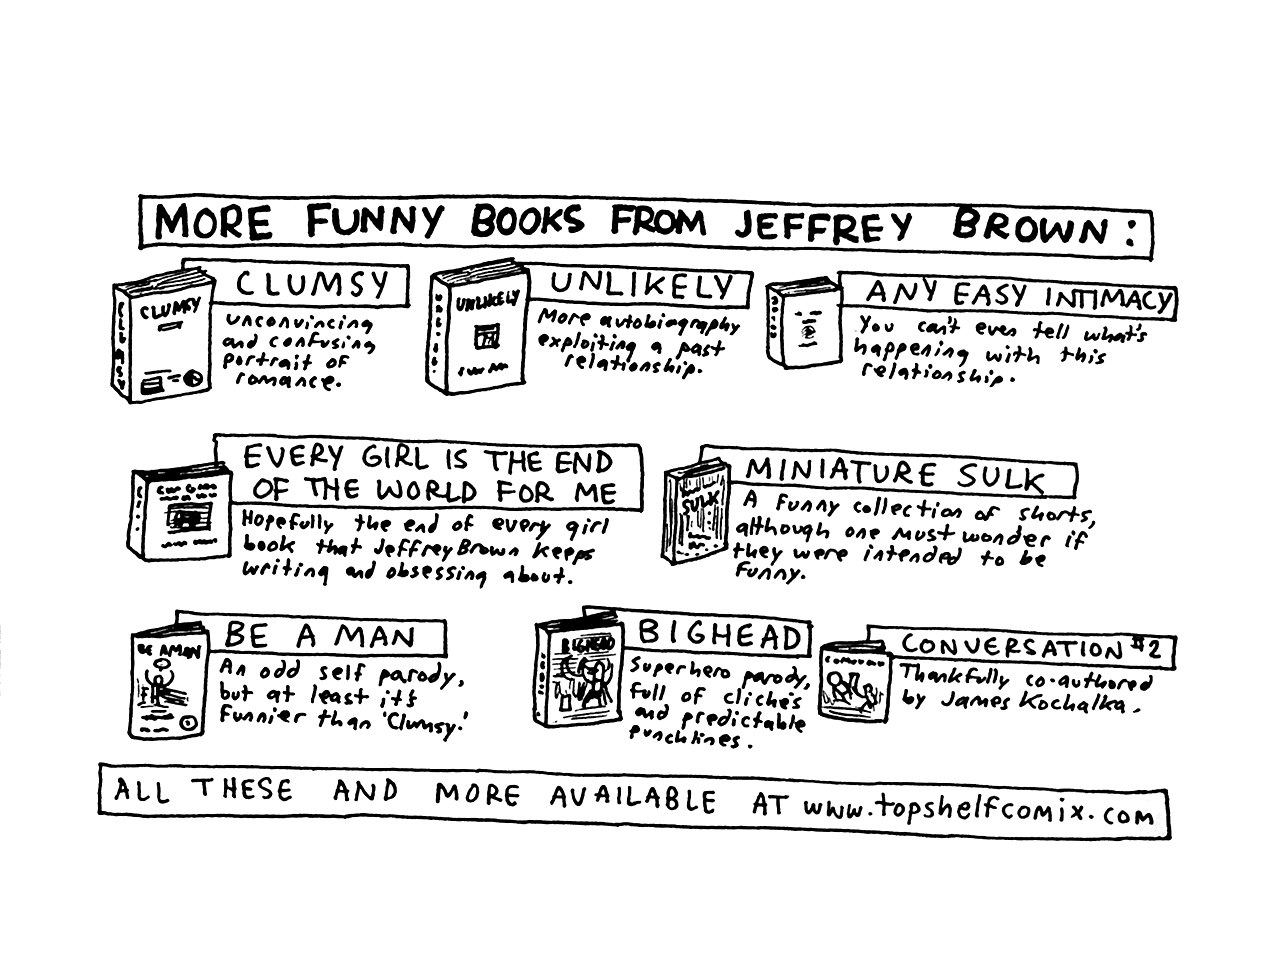 MORE FUNNY BOOKS FROM JEFFREY BROWN:
CLUMSY
CLUMSY
CLUMSY
unconvincing
and confusing
portrait of
romance.
UNLIKELY
UNLIKELY
More autobiography
exploiting a past
relationship.
ANY EASY INTIMACY
You can't even tell what's
happening with this
relationship.
EVERY GIRL IS THE END
OF THE WORLD FOR ME
Hopefully the end of every girl
book that Jeffrey Brown keeps
writing and obsessing about.
MINIATURE SULK
SULK
A funny collection of shorts,
although one must wonder if
they were intended to be
funny.
BE A MAN
BE A MAN
An odd self parody,
but at least it's
funnier than 'Clumsy.'
BIGHEAD
BIGHEAD
Superhero parody,
full of cliche's
and predictable
punchlines.
CONVERSATION #2
Thankfully co-authored
by James Kochalka.
ALL THESE AND MORE AVAILABLE AT www.topshelfcomix.com